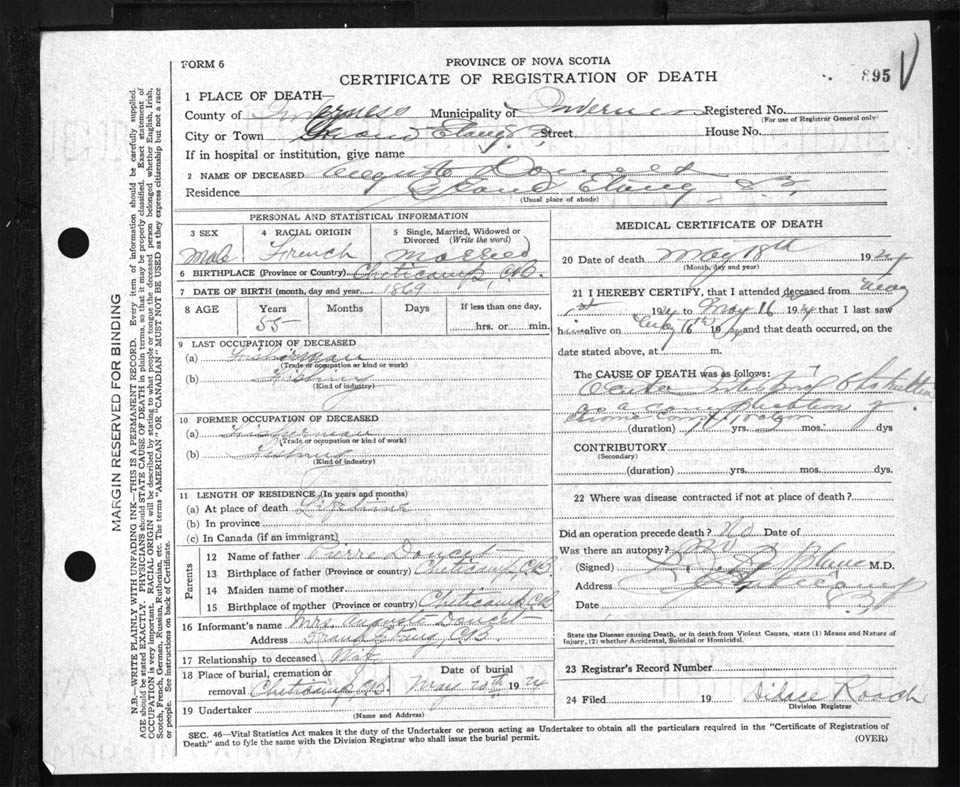 FORM 6
PROVINCE OF NOVA SCOTIA
CERTIFICATE OF REGISTRATION OF DEATH
895
1 PLACE OF DEATH—
County of Inverness Municipality of Inverness Registered No.
(For use of Registrar General only)
City or Town Grand Etang Street House No.
If in hospital or institution, give name
2 NAME OF DECEASED Doucet
Residence Grand Etang
(Usual place of abode)
PERSONAL AND STATISTICAL INFORMATION
3 SEX 4 RACIAL ORIGIN 5 Single, Married, Widowed or Divorced (Write the word)
Male French Married
6 BIRTHPLACE (Province or Country) Cheticamp, C.B.
7 DATE OF BIRTH (month, day and year) 1869
8 AGE Years Months Days If less than one day,
55 hrs. or min.
9 LAST OCCUPATION OF DECEASED
(a) Fisherman
(Trade or occupation or kind of work)
(b) Fishing
(Kind of industry)
10 FORMER OCCUPATION OF DECEASED
(a) Fisherman
(Trade or occupation or kind of work)
(b) Fishing
(Kind of industry)
11 LENGTH OF RESIDENCE (In years and months)
(a) At place of death Lifetime
(b) In province
(c) In Canada (if an immigrant)
Parents
12 Name of father Pierre Doucet
13 Birthplace of father (Province or country) Cheticamp, C.B.
14 Maiden name of mother
15 Birthplace of mother (Province or country) Cheticamp, C.B.
16 Informant's name Mrs. Doucet
Address Grand Etang, C.B.
17 Relationship to deceased Wife
18 Place of burial, cremation or removal Cheticamp, C.B. Date of burial May 20th 1924
19 Undertaker
(Name and Address)
MEDICAL CERTIFICATE OF DEATH
20 Date of death May 18th 1924
(Month, day and year)
21 I HEREBY CERTIFY, that I attended deceased from May
1st 1924 to May 16 1924 that I last saw
him alive on 16th 1924 and that death occurred, on the
date stated above, at m.
The CAUSE OF DEATH was as follows:
Obstruction
a
(duration) yrs. mos. dys
CONTRIBUTORY
(Secondary)
(duration) yrs. mos. dys.
22 Where was disease contracted if not at place of death?
Did an operation precede death? No Date of
Was there an autopsy? No
(Signed) M.D.
Address
Date
State the Disease causing Death, or in death from Violent Causes, state (1) Means and Nature of
Injury, (2) whether Accidental, Suicidal or Homicidal.
23 Registrar's Record Number
24 Filed 19 Roach
Division Registrar
SEC. 46—Vital Statistics Act makes it the duty of the Undertaker or person acting as Undertaker to obtain all the particulars required in the "Certificate of Registration of
Death" and to fyle the same with the Division Registrar who shall issue the burial permit.
(OVER)
MARGIN RESERVED FOR BINDING
N.B.—WRITE PLAINLY WITH UNFADING INK—THIS IS A PERMANENT RECORD. Every item of information should be carefully supplied.
AGE should be stated EXACTLY. PHYSICIANS should STATE CAUSE OF DEATH in plain terms, so that it may be properly classified. Exact statement of
OCCUPATION is very important. RACIAL ORIGIN will be described by stating to what people or tongue the deceased person belonged whether English, Irish,
Scotch, French, German, Russian, Ruthenian, etc. The terms "AMERICAN" OR "CANADIAN" MUST NOT BE USED as they express citizenship but not a race
or people. See instructions on back of Certificate.